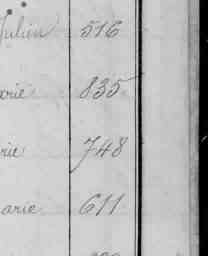 Julien 516
arie 835
rie 748
arie 611